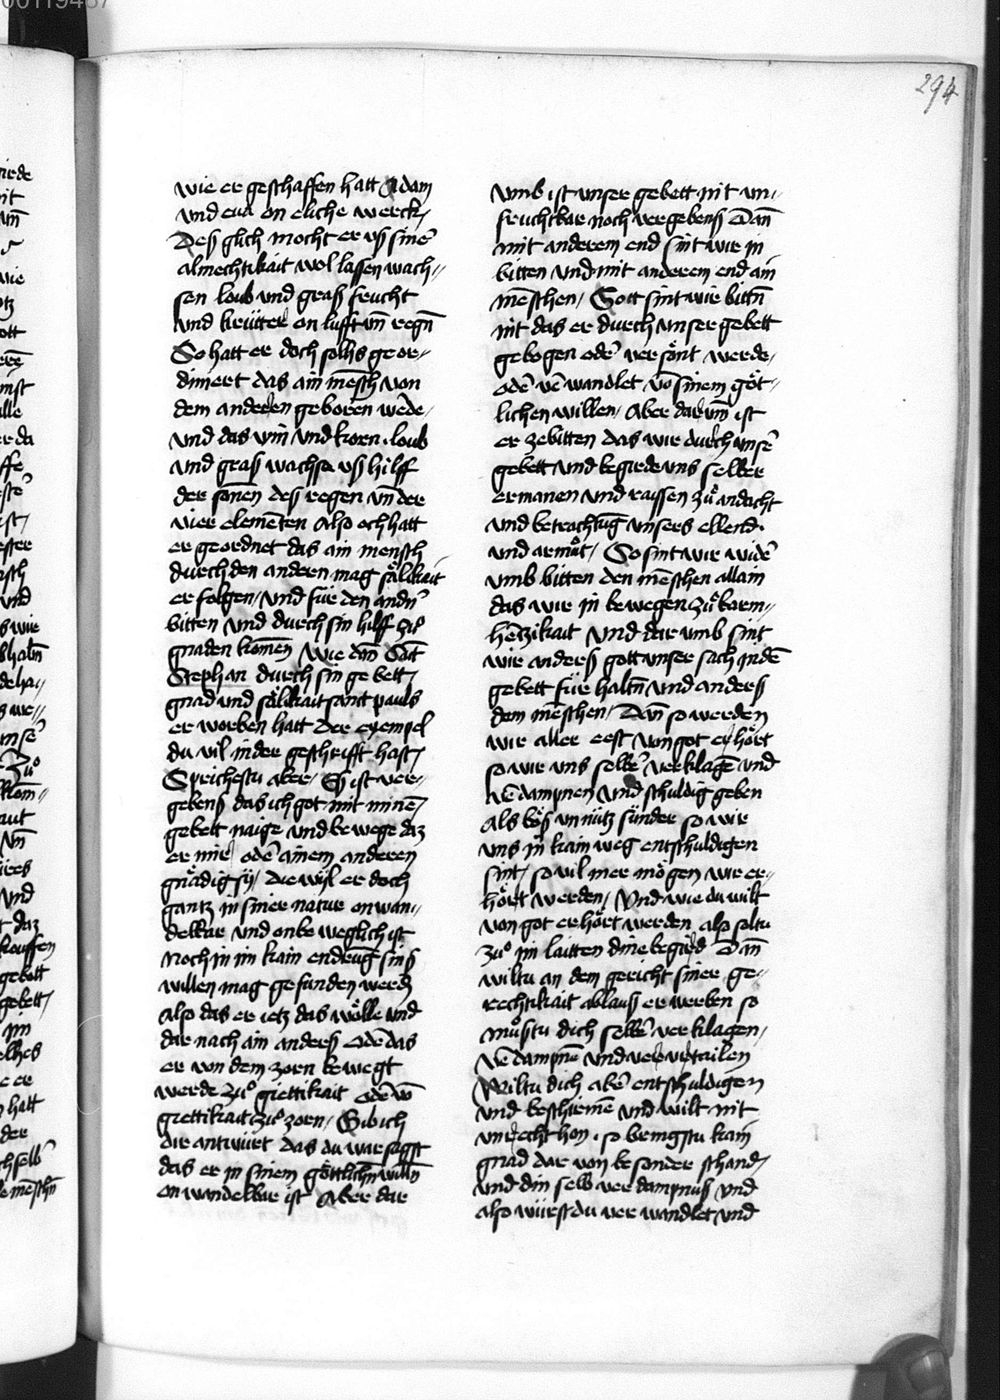 294
wie er geschaffen hatt Adam
und eva on eliche werck /
Des glich mocht er uß sinē
almechtikait wol lassen wach-
sen loub und graß frucht
und krütter on lufft uñ regñ
So hatt er doch solhs geor-
diniert das ain mēsch von
dem anderen geboren wēde /
und das win und korn . loub
und graß wachsß uß hilff
der sonēn deß regen uñ der
vier elemēten Also och hatt
er geordnet das ain mensch
durch den andern mag sälikait
er folgen / und für den andn̄
bitten und durch sin hilff zů
gnaden komēn Wie dañ Sāt
Stephan durch sin gebett /
gnad und sälikait sant pauls
er worben hatt Der exempel
du vil in der geschrifft hast /
Sprichestu aber / Es ist ver-
gebens das ich got mit minē
gebett naige und bewege daz
er mir odē ainem anderen
gnädig sy / die wyl er doch
gantz in siner natur on wan-
delbar und onbe weglich ist
Noch in im kain endrūg sinß
willen mag gefunden werdē
Also das er ietz das wölle und
dar nach ain anders Odē das
er von dem zorn bewegt
werde zů grettikait odē võ
grettikait zů zorn / Gib ich
die antwürt das du war sagst
das er in sinem göttlichñ willñ
on wandelbar ist Aber dar
umb ist unser gebett nit un-
fruchtbar noch vergebenß Dañ
mit anderem end sint wir in
bitten und mit anderem end ain
mēschen / Gott sint wir bittñ
nit das er durch unser gebett
gebogen odē versönt werde /
odē vē wandlet vō sinem göt-
lichen willen / Aber dar um̄ ist
er ze bitten das wir durch unsē
gebett und begirde uns selber
ermanen und raissen zů andacht
und betrachtūg unsers ellend .
und armůt / So sint wir widē
umb bitten den mēschen allain
das wir in bewegen zů barm-
hertzikait Und dar umb sint
wir anders gott unser sach in dē
gebett für haltñ und anders
dem mēschen / Dañ so werden
wir aller erst von got er hört
so wir uns selbē verklagē und
vē dampnen und schuldig geben
als böß un nütz sünder so wir
uns in kain weg entschuldigen
sint / so vil mer mögen wir er-
hört werden / Und wie du wilt
von got er hört werden also soltu
zů im laitten dine begird Dañ
wiltu an dem gericht siner ge-
rechtikait ablauß er werben so
můstu dich selbē verklagen /
vē dampnē und ver urtailen
Wiltu dich abē entschuldigen
und beschirmē und wilt nit
unrecht hon . so bringstu kain
gnad dar von besonder schand /
und din selb ver dampnuß und
also würst du ver wandlet und